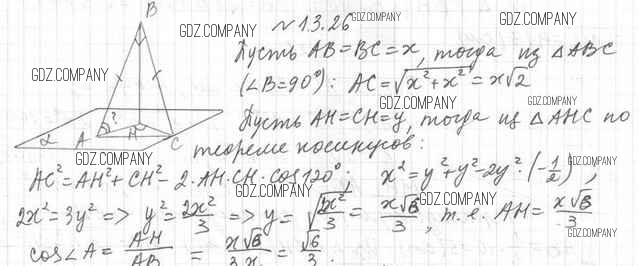 B
GDZ.COMPANY
№ 13.26 GDZ.COMPANY GDZ.COMPANY
GDZ.COMPANY
Пусть AB=BC=x, тогда из △ABC
GDZ.COMPANY
(∠B=90°): AC=√x²+x²=x√2
GDZ.COMPANY GDZ.COMPANY
Пусть AH=CH=y, тогда из △AHC по
α A ? H C
GDZ.COMPANY
теореме косинусов:
GDZ.COMPANY
AC²=AH²+CH²-2·AH·CH·cos120°; x²=y²+y²-2y²·(-1/2),
GDZ.COMPANY GDZ.COMPANY
2x²=3y² => y²=2x²/3 => y=√2x²/3=x√6/3, т.е. AH=x√6/3
GDZ.COMPANY
cos∠A=AH/AB=x√6/3x=√6/3.